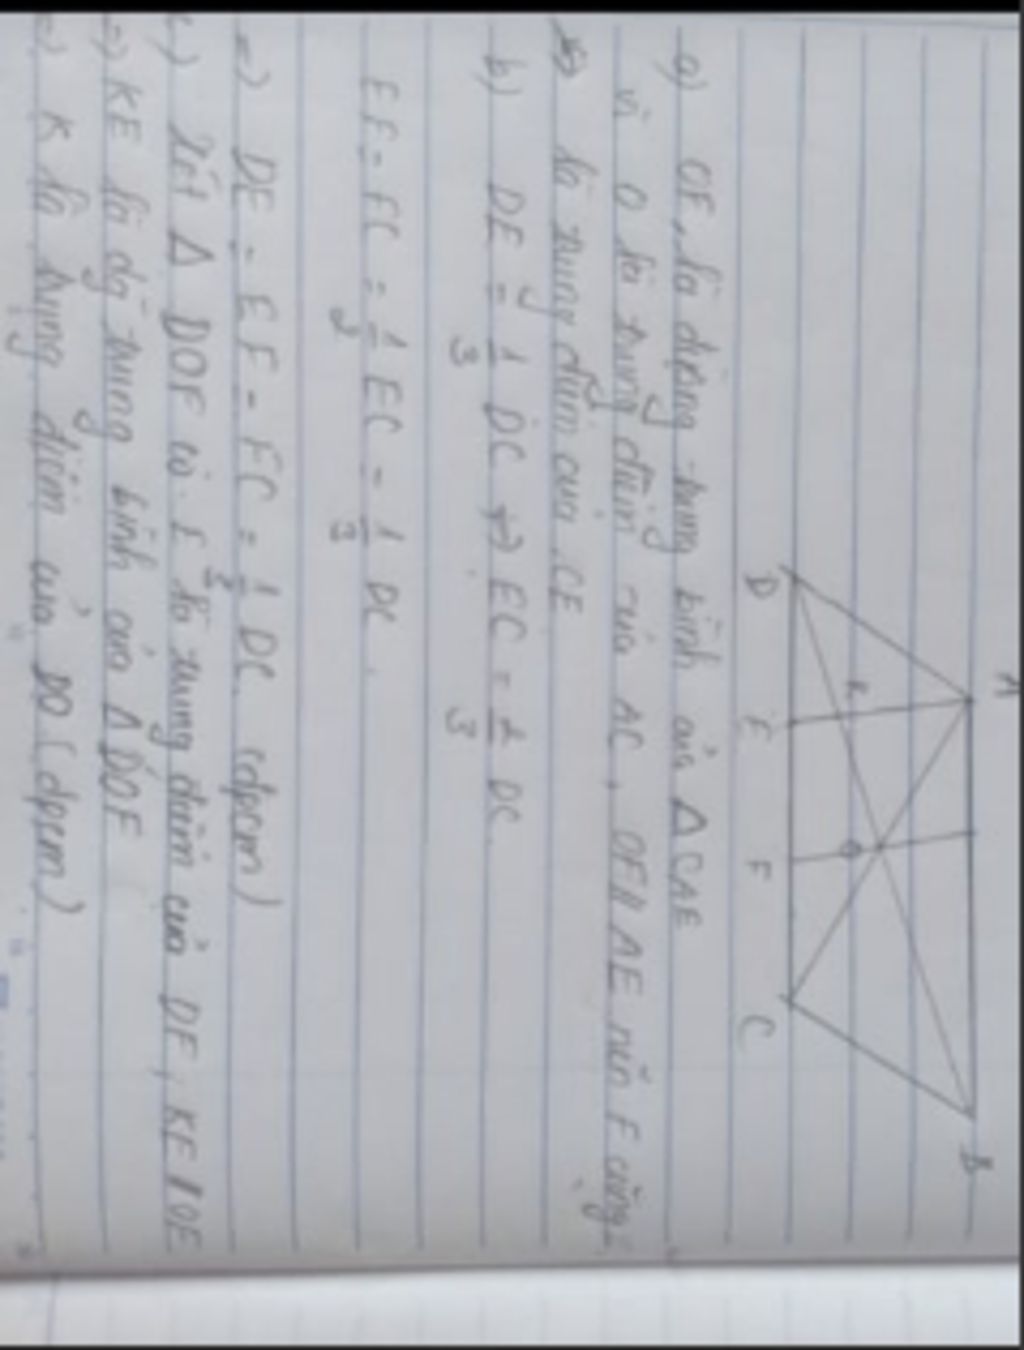 A
B
K
O
D
E
F
C
a) OF là đường trung bình của Δ CAE
vì O là trung điểm của AC, OF // AE nên F cũng
là trung điểm của CE
b) DE = 1/3 DC => EC = 2/3 DC
EF = FC = 1/2 EC = 1/3 DC.
=> DE = EF = FC = 1/3 DC (đpcm)
c) Xét Δ DOF có E là trung điểm của DF, KE // OF
=> KE là đg trung bình của Δ DOF
=> K là trung điểm của DO (đpcm)